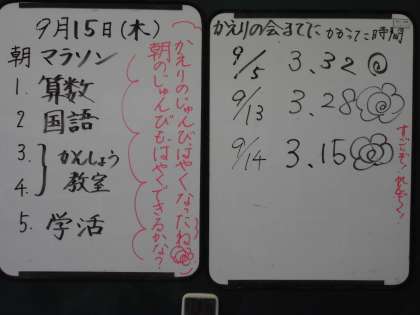 9月15日(木)
朝 マラソン
1. 算数
2 国語
3.
4.
かんしょう
教室
5. 学活
かえりのじゅんびはやくなったね
朝のじゅんびもはやくできるかな?
かえりの会までにかかった時間
9/5 3.32
9/13 3.28
9/14 3.15
すごいぞ!